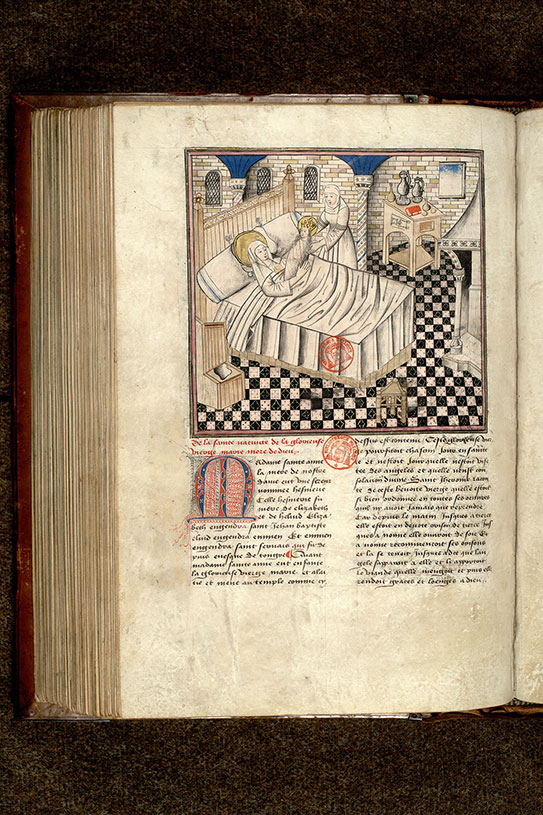 De la sainte nativite de la glorieuse
vierge marie mere de dieu
Madame sainte anne
la mere de nostre
dame eut une serour
nommee hesmerie
Celle hesmerie fu
mere de elizabeth
et de heliud Eliza
beth engendra saint Jehan baptiste
eliud engendra eminen Et eminen
engendra saint servais qui fu de
puis evesque de tongres Quant
madame sainte anne eut enfante
la glorieuse vierge marie et alai
tie et mene au temple comme cy
dessus est contenu Ceste glorieuse vier
ge pourfitoit chascun Jour en saincte
te et nestoit Jour quelle nestoit visi
tee des angeles et quelle neust con
solation divine Saint Iherome
de ceste benoite vierge quelle estoit
si bien ordonnee en toutes ses oeuvres
quil ny avoit Jamais que reprendre
Car depuis le matin Jusques a tierce
elle estoit en devote orison de tierce Jus
ques a nonne elle ouvroit de soie Et
a nonne recommencoit ses orisons
et la se tenoit Jusques adce que lan
gele sapparoit a elle et li apportoit
la viande quelle mengoit et puis elle
rendoit graces et loenges a dieu